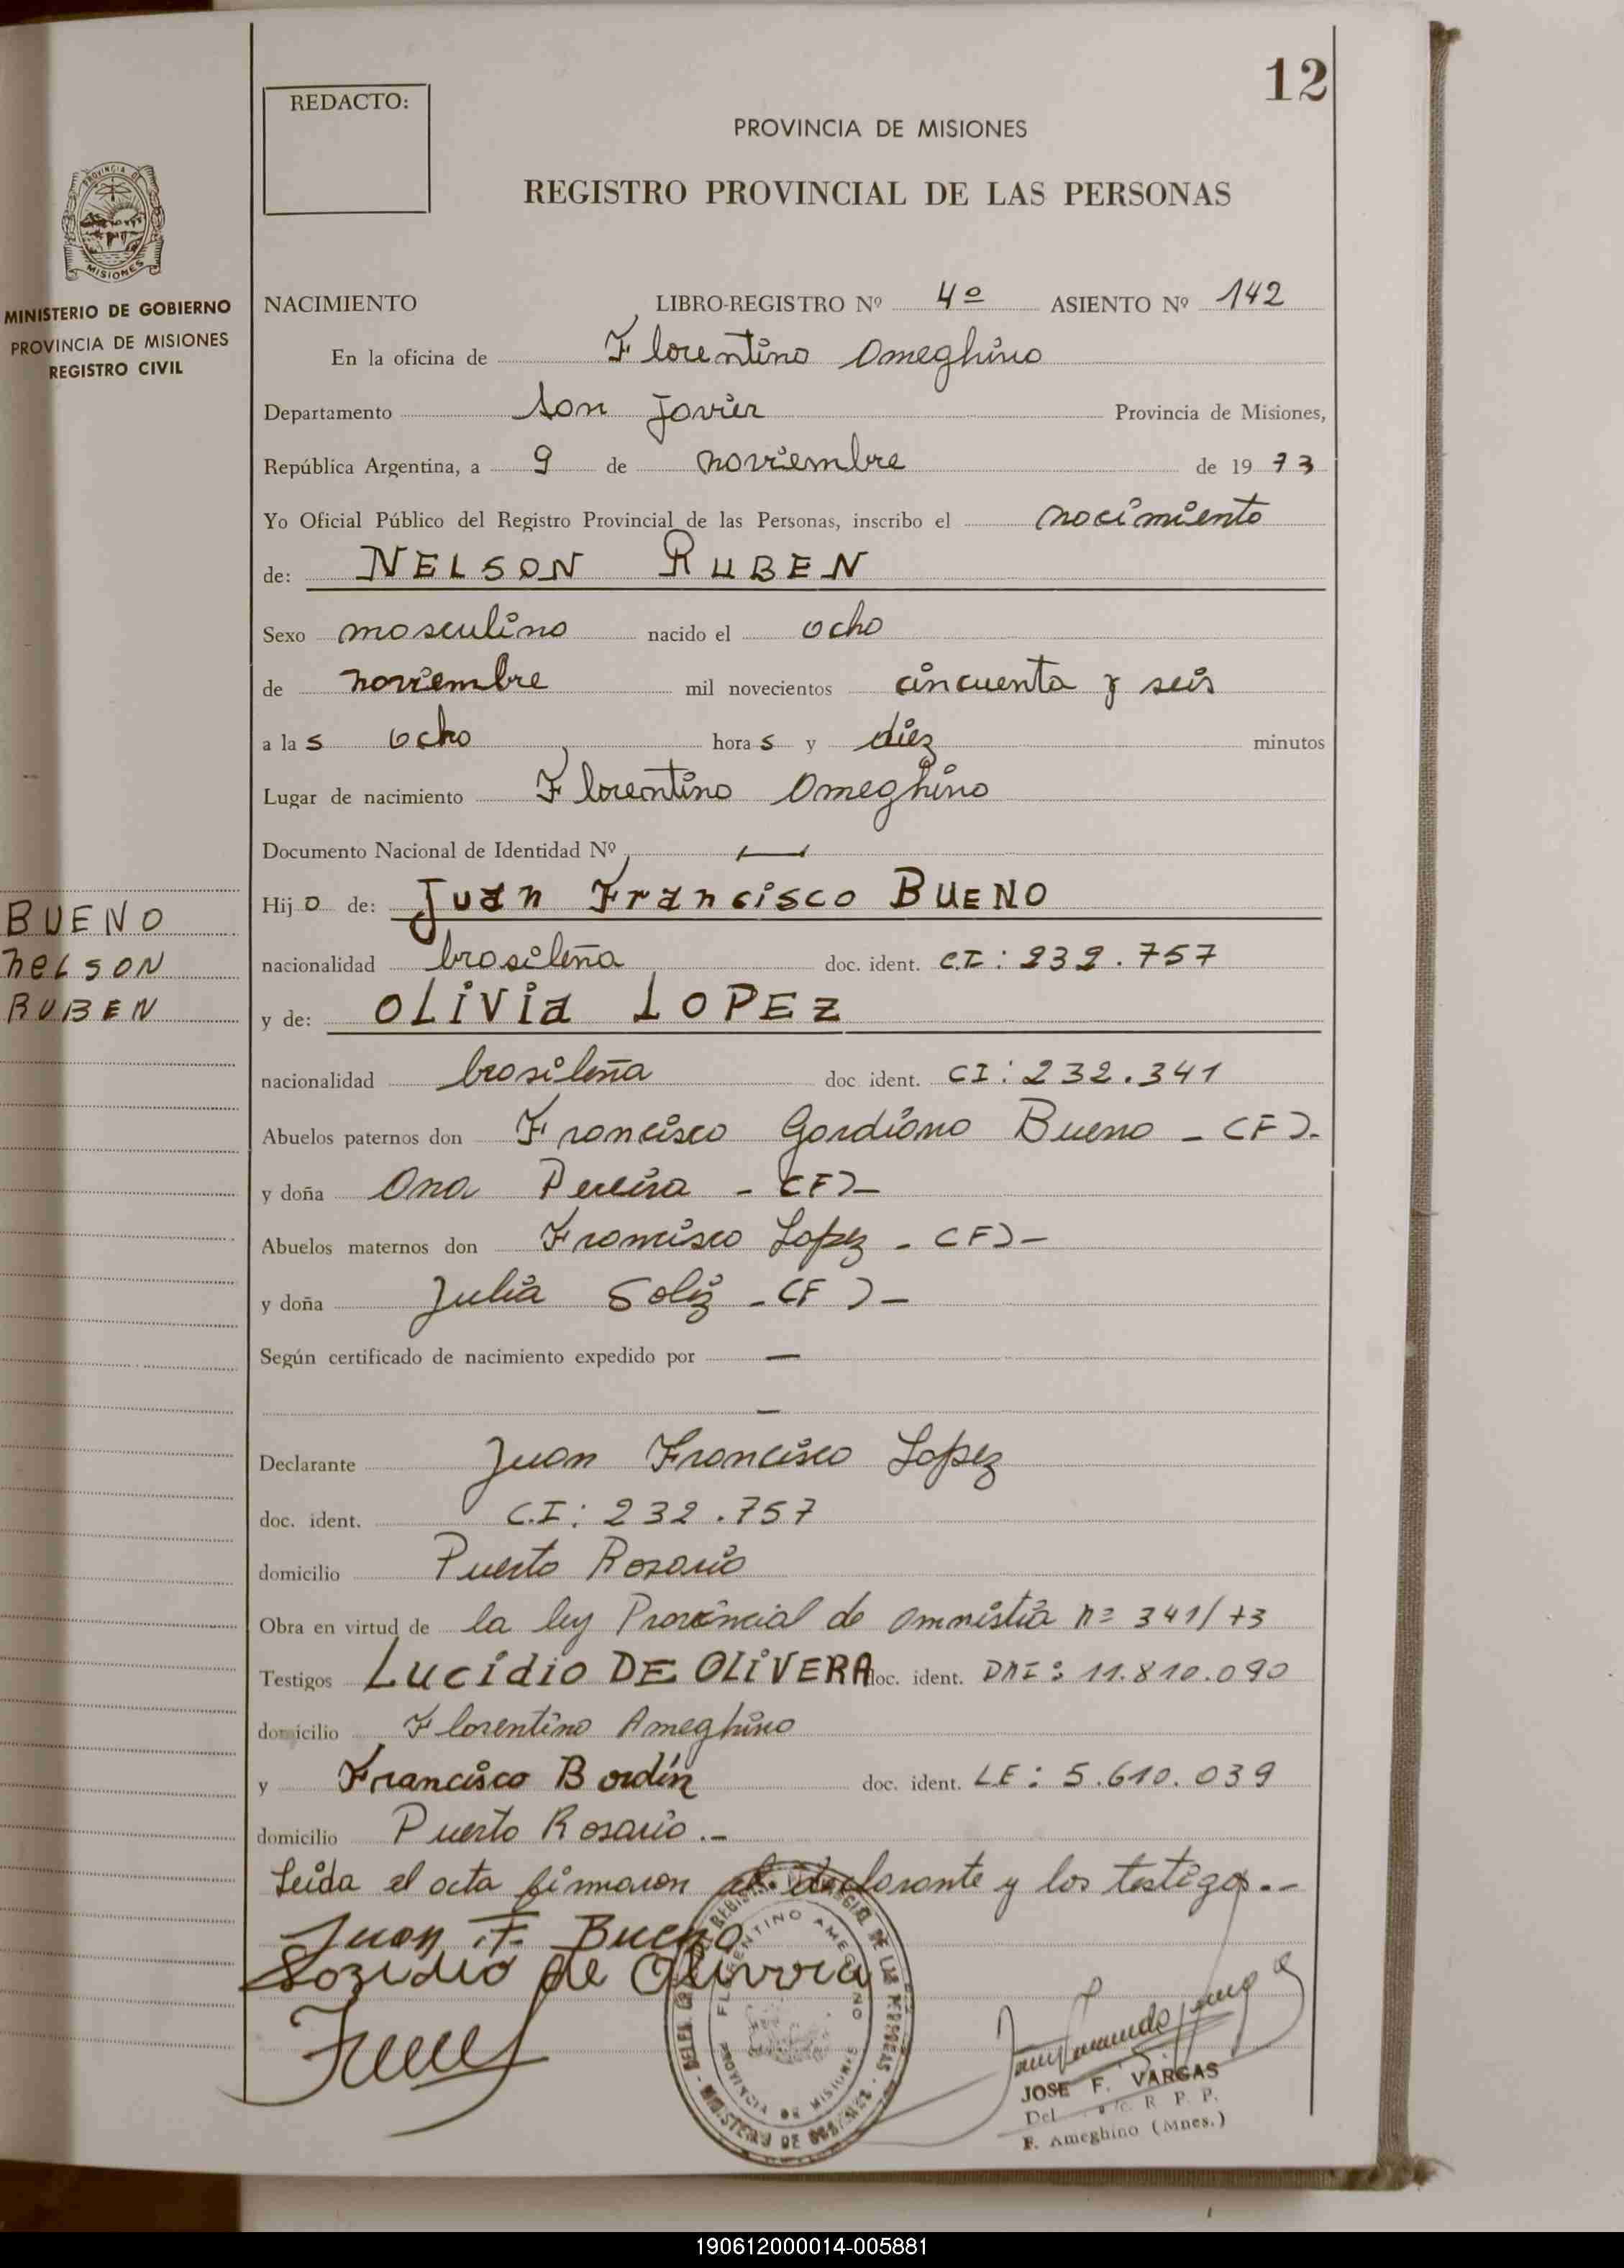 12
REDACTO:
PROVINCIA DE MISIONES
REGISTRO PROVINCIAL DE LAS PERSONAS
PROVINCIA DE
MISIONES
MINISTERIO DE GOBIERNO
PROVINCIA DE MISIONES
REGISTRO CIVIL
NACIMIENTO LIBRO-REGISTRO Nº 4º ASIENTO Nº 142
En la oficina de Florentino Ameghino
Departamento San Javier Provincia de Misiones,
República Argentina, a 9 de noviembre de 19 73
Yo Oficial Público del Registro Provincial de las Personas, inscribo el nacimiento
de: NELSON RUBEN
Sexo masculino nacido el ocho
de noviembre mil novecientos cincuenta y seis
a la s ocho hora s y diez minutos
Lugar de nacimiento Florentino Ameghino
Documento Nacional de Identidad Nº —
Hij o de: Juan Francisco BUENO
BUENO
NELSON
RUBEN
nacionalidad brasileña doc. ident. C.I: 232.757
y de: OLIVIA LOPEZ
nacionalidad brasileña doc ident. CI: 232.341
Abuelos paternos don Francisco Gardiano Bueno - (F).
y doña Ana Pereira - (F)-
Abuelos maternos don Francisco Lopez - (F)-
y doña Julia Soliz - (F)-
Según certificado de nacimiento expedido por —
—
Declarante Juan Francisco Lopez
doc. ident. C.I: 232.757
domicilio Puerto Rosario
Obra en virtud de la ley Provincial de amnistia nº 341/73
Testigos LUCIDIO DE OLIVERA doc. ident. DNI: 11.810.090
domicilio Florentino Ameghino
y Francisco Bordín doc. ident. LE: 5.610.039
domicilio Puerto Rosario.-
Leida el acta firmaron el declarante y los testigos.-
Juan F. Bueno
de Olivera
FLORENTINO AMEGHINO
PROVINCIA DE MISIONES
JOSE F. VARGAS
Del. R. P. P.
F. Ameghino (Mnes.)
190612000014-005881